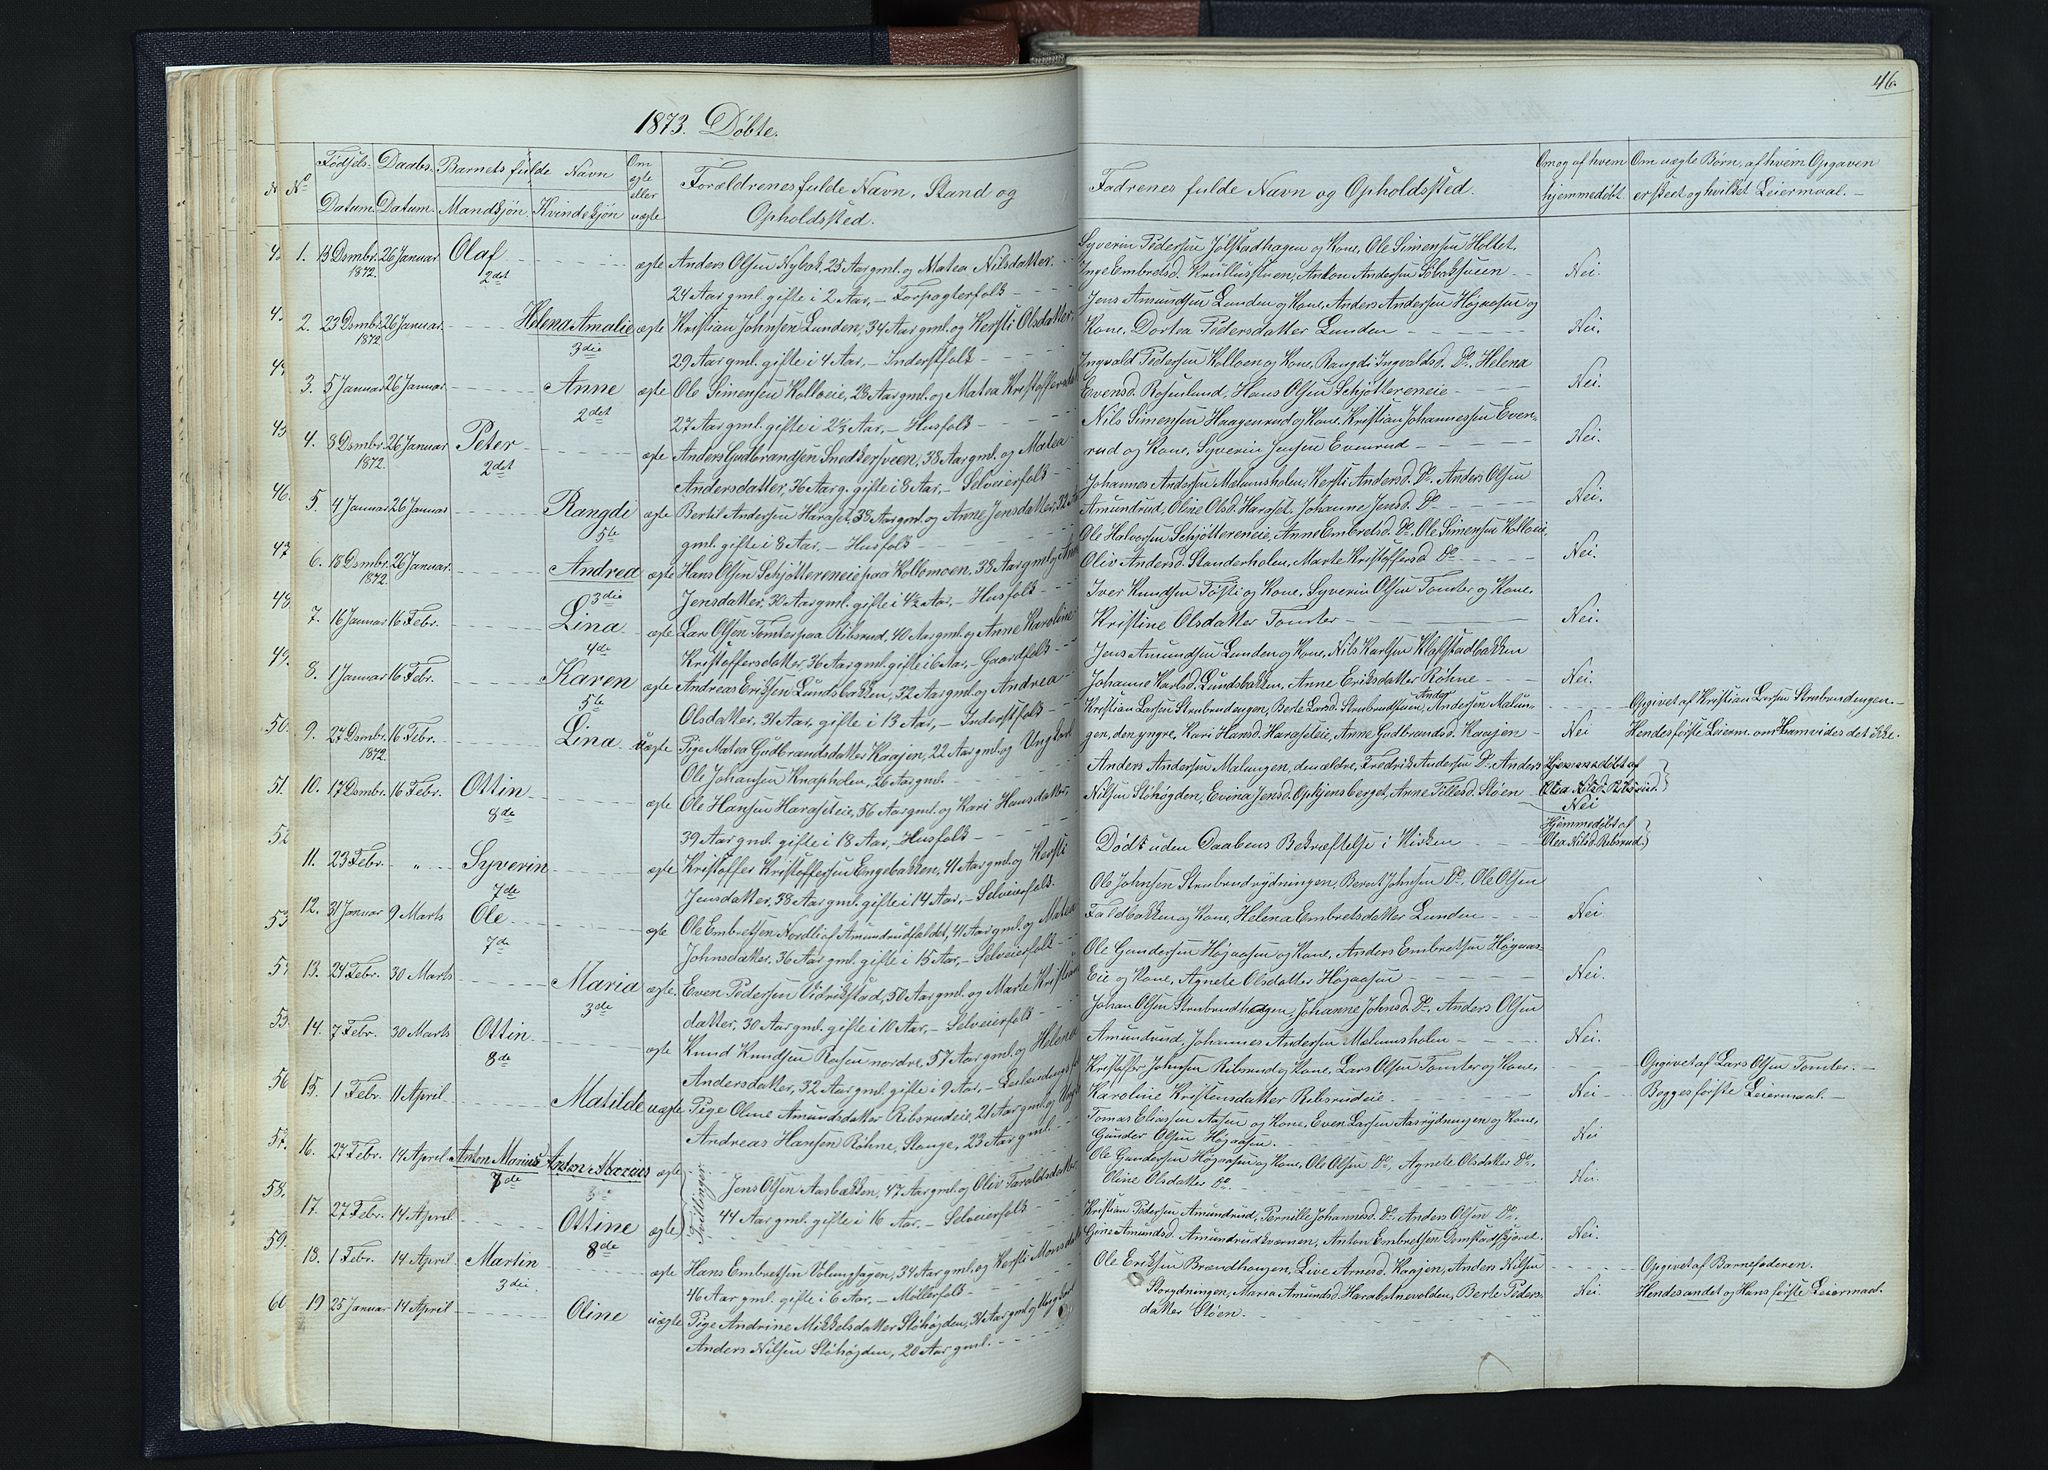 46.
1873. Døbte.
No Fødsels-Datum. Daabs-Datum. Barnets fulde Navn Mandkjøn. Kvindekjøn Om ægte eller uægte Forældrenes fulde Navn, Stand og Opholdssted.
Fadrenes fulde Navn og Opholdssted. Om og af hvem hjemmedøbt Om uægte Børn, af hvem Opgaven er skeet og hvilket Leiermaal.
1. 13 Dsmbr. 1872. 26 Januar Olaf 2det ægte Anders Olsen Nybak, 25 Aar gml. og Matea Nilsdatter.
24 Aar gml. gifte i 2 Aar, - Forpagterfolk
Syverin Pedersen Jølstadhagen og Kone, Ole Simensen Holtet.
Inge Embretsd. Knullusstuen, Anton Andersen Nei.
2. 23 Dsmbr. 1872. 26 Januar. Helena Amalie 3die ægte Kristian Johnsen Lunden, 34 Aar gml. og Kersti Olsdatter.
29 Aar gml. gifte i 4 Aar, - Inderstfolk
Jens Amundsen Lunden og Kone, Anders Andersen Høgaasen og
Kone, Dortea Pedersdatter Lunden Nei.
3. 5 Januar 26 Januar Anne 2det ægte Ole Simensen Kolloeie, 28 Aar gml. og Matea Kristoffersdat
27 Aar gml. gifte i 2½ Aar, - Husfolk
Ingvald Pedersen Kolloen og Kone, Rangdi Ingvaldsd. Do, Helena
Evensd. Rosenlund, Hans Olsen Schjøttereneie Nei.
4. 3 Dsmbr. 1872. 26 Januar Peter 2det ægte Anders Gudbrandsen Snedkersveen, 38 Aar gml. og Matea
Andersdatter, 36 Aar g. gifte i 8 Aar, - Selveierfolk
Nils Simensen Haagenrud og Kone, Kristian Johannessen Even-
rud og Kone, Syverin Jensen Evenrud Nei.
5. 4 Januar 26 Januar Rangdi 5te ægte Bertil Andersen Haraset, 38 Aar gml. og Anne Jensdatter, 32 Aar
gml. gifte i 8 Aar, - Husfolk
Johannes Andersen Melumsholen, Kersti Andersd. Do, Anders Olsen
Amundrud, Oline Olsd. Haraset, Johanne Jensd. Do Nei.
6. 18 Dsmbr. 1872 26 Januar. Andrea 3die ægte Hans Olsen Schjøttereneie paa Kollomoen, 38 Aar gml. og
Jensdatter, 30 Aar gml. gifte i 4½ Aar, - Husfolk
Ole Halvorsen Schjøttereneie, Anne Embretsd. Do, Ole Simensen Kolloeie,
Oliv Andersd. Standerholen, Marte Kristoffersd. Do Nei.
7. 16 Januar 16 Febr. Lina 4de ægte Lars Olsen Tomter paa Ribsrud, 40 Aar gml. og Anne Karoline
Kristoffersdatter, 36 Aar gml. gifte i 6 Aar, - Gaardfolk
Iver Knudsen Tøfti og Kone, Syverin Olsen Tomter og Kone,
Kristine Olsdatter Tomter Nei.
8. 1 Januar 16 Febr. Karen 5te ægte Andreas Eriksen Lundsbakken, 32 Aar gml. og Andrea
Olsdatter, 31 Aar, gifte i 13 Aar, - Inderstfolk
Jens Amundsen Lunden og Kone, Nils Karlsen Klafstadbakken
Johanne Karlsd. Lundsbakken, Anne Eriksdatter Røhne Nei.
9. 27 Dsmbr. 1872. 16 Febr. Lina uægte Pige Matea Gudbrandsdatter Kaajen, 22 Aar gml. og Ungkarl
Ole Johansen Knapholen, 26 Aar gml.
Kristian Larsen Strubrudengen, Berte Larsd. Strubrudsveen, Anders Andersen Malun-
gen, den yngre, Kari Hansd. Haraseteie, Anne Gudbrandsd. Kaajen Nei
Opgivet af Kristian Larsen Strubrudengen.
Hendes første Leierm. om Ham vides det ikke.
10. 17 Dsmbr. 16 Febr. Ottin 8de ægte Ole Hansen Haraseteie, 56 Aar gml. og Kari Hansdatter,
39 Aar gml. gifte i 18 Aar, Husfolk
Anders Andersen Malungen, den ældre, Fredrik Andersen Do, Anders
Nilsen Støhøgden, Evina Jensd. Opkjensberget, Anne Tillesd. Støen Nei
11. 23 Febr. " Syverin 7de ægte Kristoffer Kristoffersen Engebakken, 41 Aar gml. og Kersti
Jensdatter, 38 Aar gml. gifte i 14 Aar, - Selveierfolk.
Død uden Daabens Bekræftelse i Kirken Hjemmedøbt af
Olea Nilsd. Ribsrud.
12. 31 Januar 9 Marts Ole 7de ægte Ole Embretsen Nordli af Amundrudfaldet, 41 Aar gml. og Matea
Johnsdatter, 36 Aar gml. gifte i 15 Aar, - Selveierfolk
Ole Johnsen Strubrudrydningen, Bernt Johnsen Do, Ole Olsen
Faldbakken og Kone, Helena Embretsdatter Lunden Nei
13. 24 Febr. 30 Marts Maria 3de ægte. Even Pedersen Vidrikstad, 50 Aar gml. og Marte Kristians
datter, 30 Aar gml. gifte i 10 Aar, - Selveierfolk
Ole Gundersen Høgaasen og Kone, Anders Embretsen Høgaas-
Eie og Kone, Agnete Olsdatter Høgaasen Nei.
14. 7 Febr. 30 Marts Ottin 8de ægte Knud Knudsen Rosen nordre, 57 Aar gml. og Helena
Andersdatter, 32 Aar gml. gifte i 9 Aar,
Johan Olsen Strubrudhagen, Johanne Johnsd. Do, Anders Olsen
Amundrud, Johannes Andersen Melumsholen Nei.
15. 1 Febr. 11 April Matilde uægte Pige Oline Amundsdatter Ribsrudeie, 21 Aar gml. og
Andreas Hansen Røhne, Stange, 23 Aar gml.
Kristoffer Johnsen Ribsrud og Kone, Lars Olsen Tomter og Kone,
Karoline Kristensdatter Ribsrudeie Nei
Opgivet af Lars Olsen Tomter.
Begges første Leiermaal.
16. 27 Febr. 14 April Anton Marius 7de Anton Marius ægte Tvillinger
Jens Olsen Aasbakken, 47 Aar gml. og Oliv Taraldsdatter
44 Aar gml. gifte i 16 Aar. - Selveierfolk
Tomas Eliassen Aasen og Kone, Even Larsen Aasrydningen og Kone,
Gunder Olsen Høgaasen. Nei
17. 27 Febr. 14 April. Ottine 8de ægte
Ole Gundersen Høgaasen og Kone, Ole Olsen Do, Agnete Olsdatter Do,
Oline Olsdatter Do. Nei.
18. 1 Febr. 14 April Martin 3die ægte Hans Embretsen Volungshagen, 34 Aar gml. og Kersti Monsdat
46 Aar gml. gifte i 6 Aar, - Møllerfolk
Kristian Pedersen Amundrud, Pernille Johannesd. Do, Anders Olsen Do,
Gine Amundsd. Amundrudkværnen, Anton Embretsen Domstadskjøret. Nei.
19 25 Januar 14 April Oline uægte Pige Andrine Mikkelsdatter Støhøgden, 31 Aar gml. og Ungkarl
Anders Nilsen Støhøgden, 20 Aar gml.
Ole Eriksen Brændhaugen, Live Arnesd. Kaajen, Anders Nilsen
Storydningen, Maria Amundsd. Harabetnevolden, Berte Peders-
datter Støen. Nei.
Opgivet af Barnefaderen.
Hendes andet og Hans første Leiermaal.